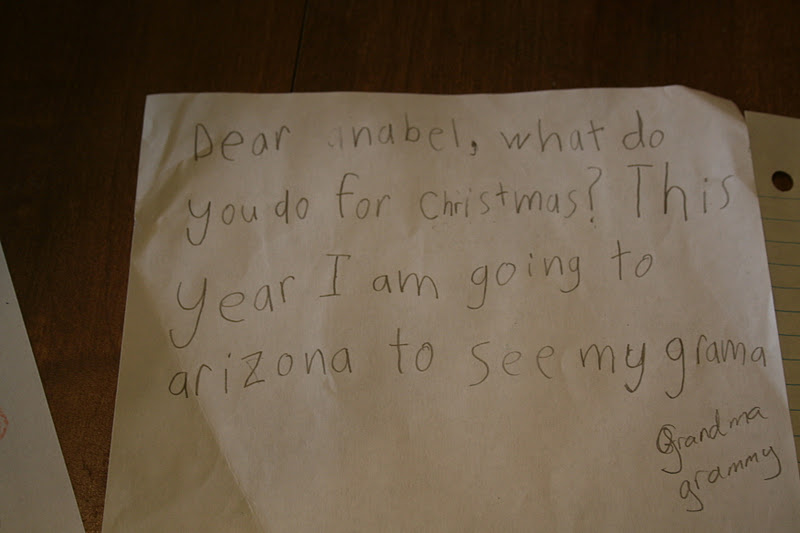 Dear anabel, what do
you do for Christmas? This
year I am going to
arizona to see my grama
Grandma
grammy